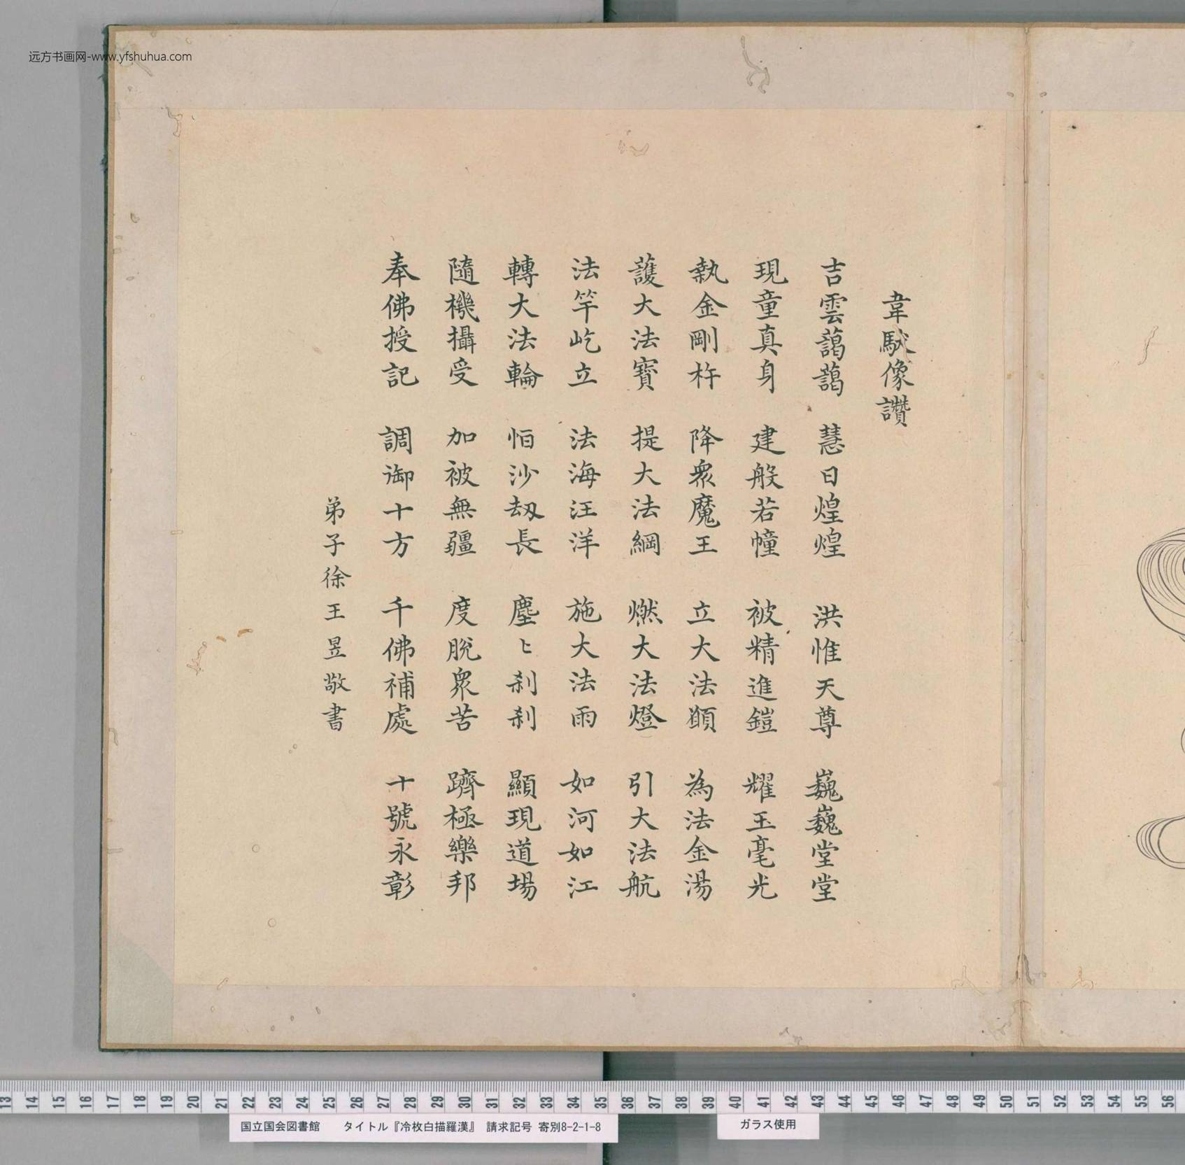 远方书画网-www.yfshuhua.com
韋馱像讚
吉雲藹藹 慧日煌煌 洪惟天尊 巍巍堂堂
現童真身 建般若幢 被精進鎧 耀玉毫光
執金剛杵 降衆魔王 立大法顓 為法金湯
護大法寶 提大法綱 燃大法燈 引大法航
法竿屹立 法海汪洋 施大法雨 如河如江
轉大法輪 恒沙刼長 塵〻刹刹 顯現道場
隨機攝受 加被無疆 度脫衆苦 躋極樂邦
奉佛授記 調御十方 千佛補處 十號永彰
弟子徐王昱敬書
13 14 15 16 17 18 19 20 21 22 23 24 25 26 27 28 29 30 31 32 33 34 35 36 37 38 39 40 41 42 43 44 45 46 47 48 49 50 51 52 53 54 55 56
国立国会図書館 タイトル『冷枚白描羅漢』 請求記号 寄別8-2-1-8
ガラス使用